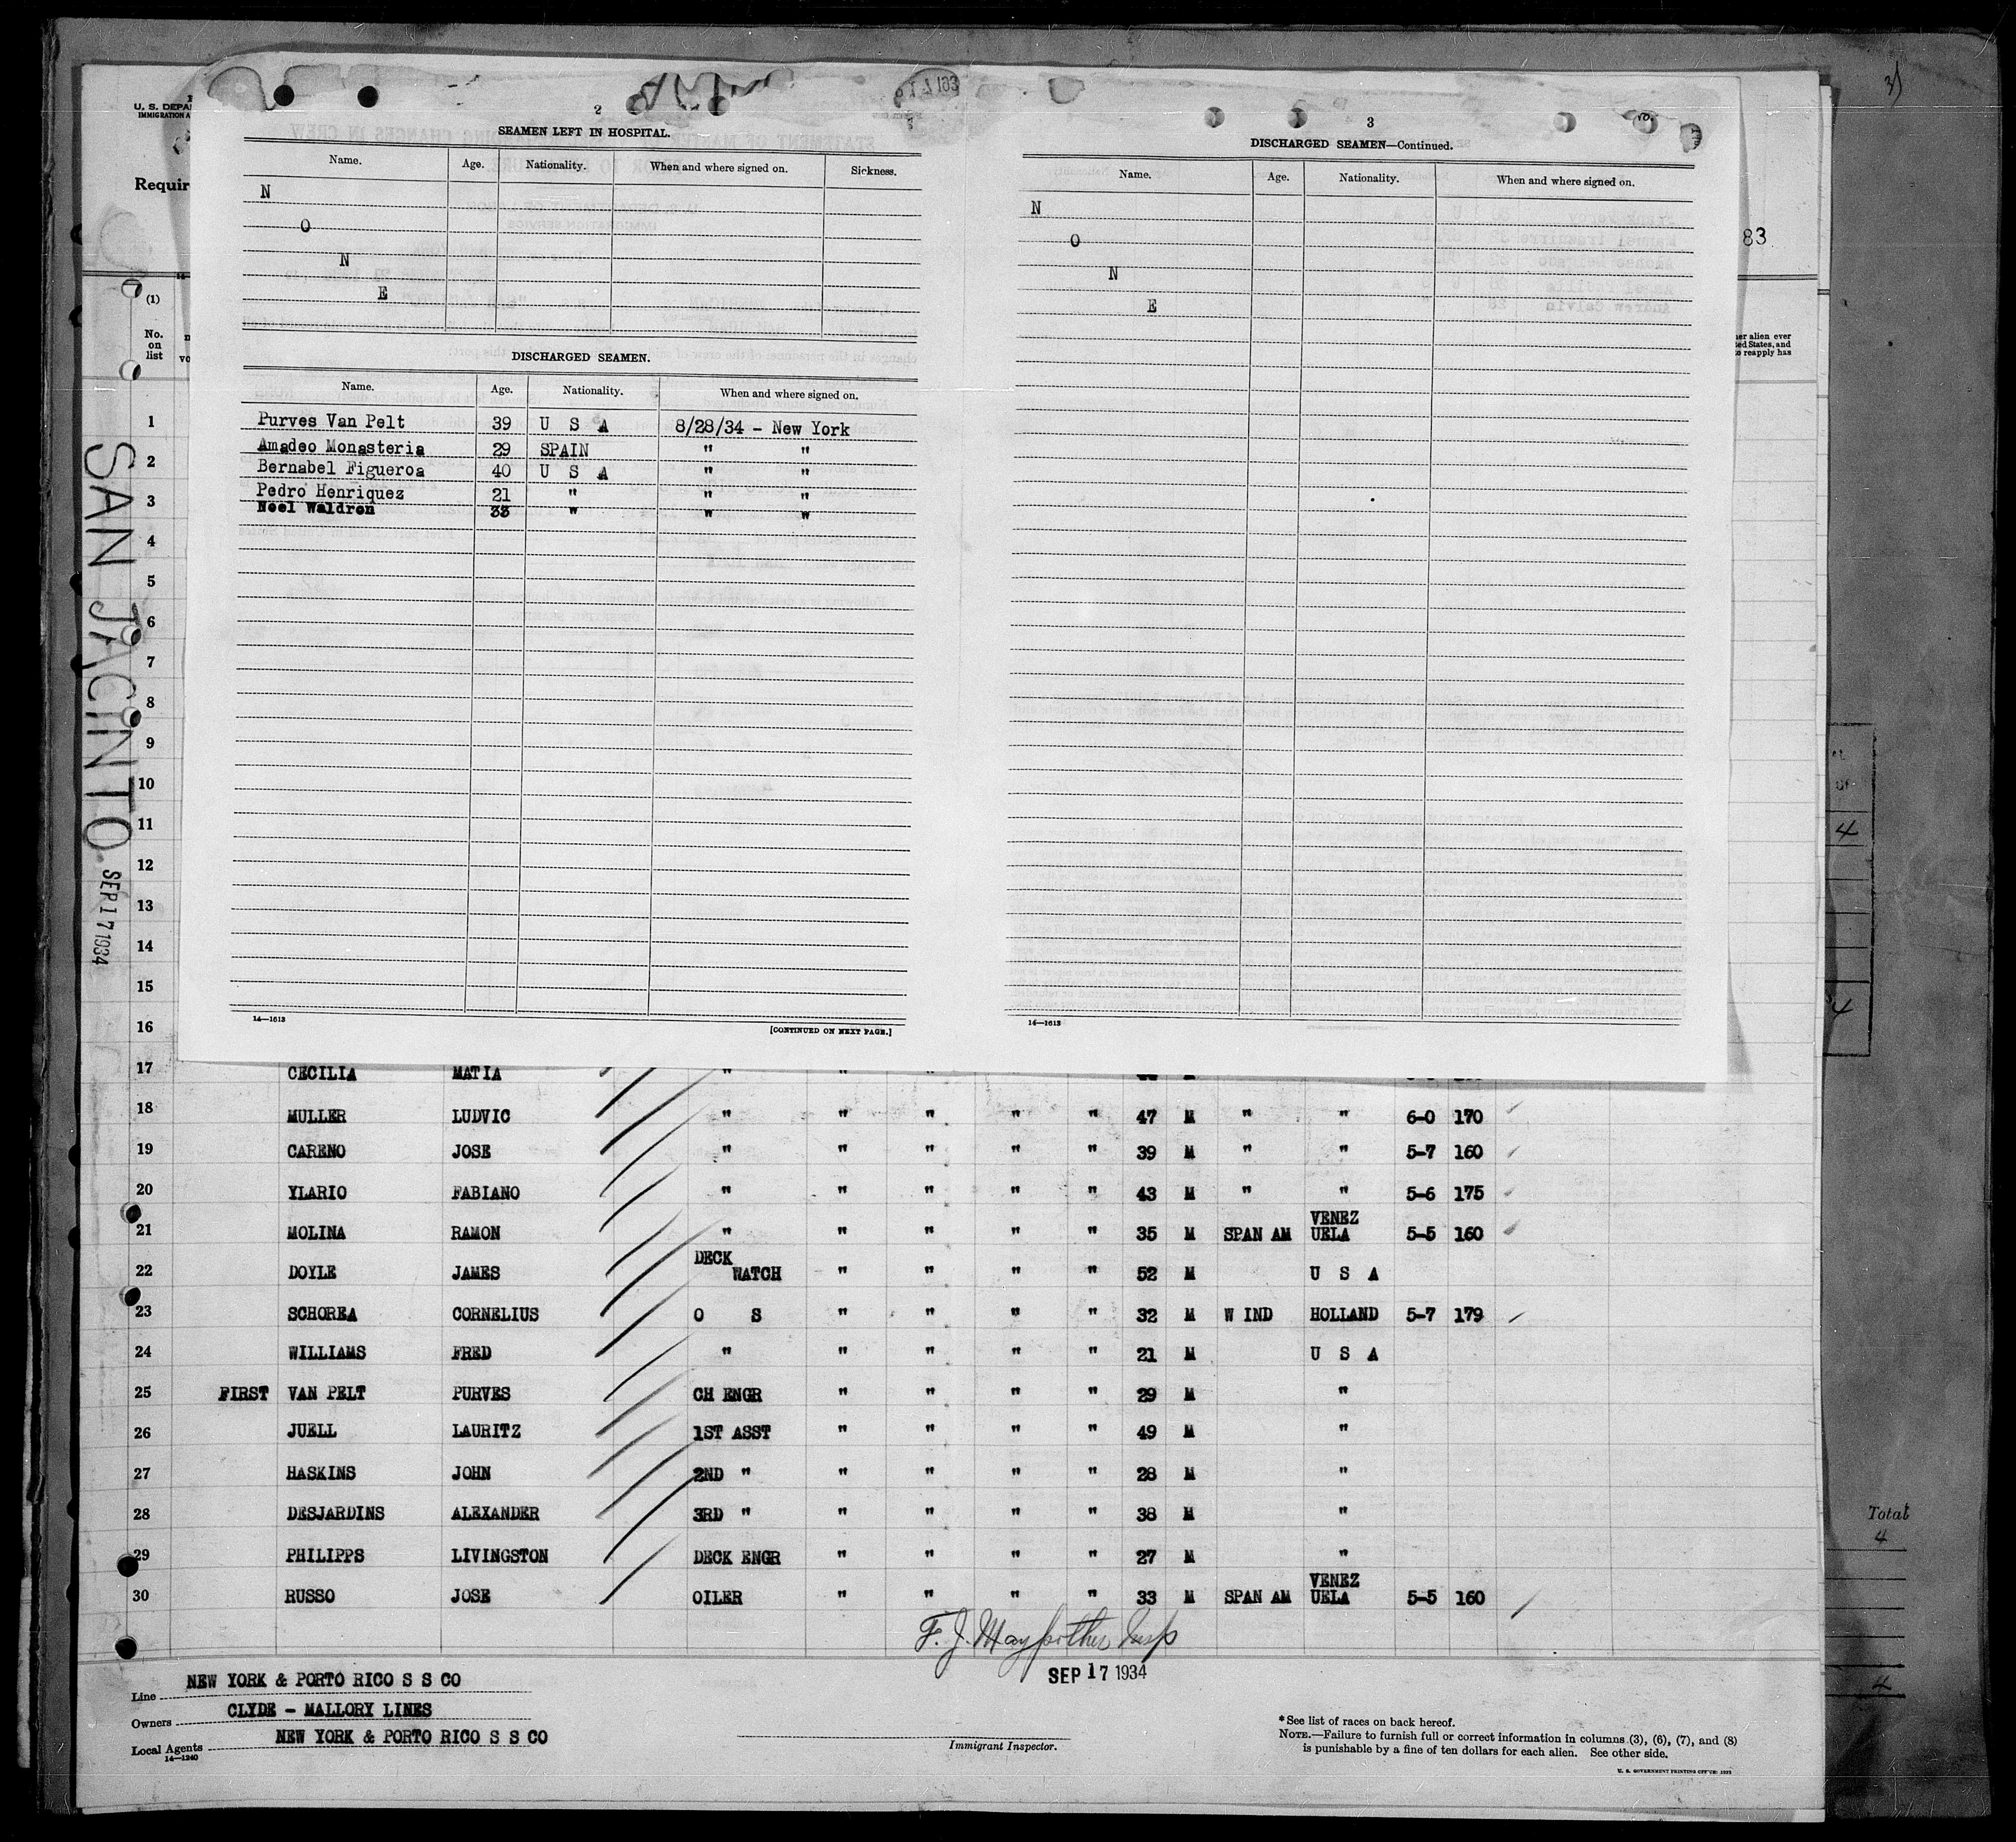 U. S. DEPA
IMMIGRATION A
Requir
83
2
SEAMEN LEFT IN HOSPITAL.
Name. Age. Nationality. When and where signed on. Sickness.
N
O
N
E
DISCHARGED SEAMEN.
Name. Age. Nationality. When and where signed on.
Purves Van Pelt 39 U S A 8/28/34 - New York
Amadeo Monasteria 29 SPAIN " "
Bernabel Figueroa 40 U S A " "
Pedro Henriquez 21 " " "
Noel Waldron 33 " " "
14—1613
[CONTINUED ON NEXT PAGE.]
3
DISCHARGED SEAMEN—Continued.
Name. Age. Nationality. When and where signed on.
N
O
N
E
14—1613
(1)
No.
on
list
her alien ever
ted States, and
to reapply has
SAN JACINTO
SEP 17 1934
1
2
3
4
5
6
7
8
9
10
11
12
13
14
15
16
17 CECILIA MATIA " " " " "
18 MULLER LUDVIC " " " " " 47 M " " 6-0 170
19 CARENO JOSE " " " " " 39 M " " 5-7 160
20 YLARIO FABIANO " " " " " 43 M " " 5-6 175
21 MOLINA RAMON " " " " " 35 M SPAN AM VENEZ UELA 5-5 160
22 DOYLE JAMES DECK WATCH " " " " 52 M U S A
23 SCHOREA CORNELIUS O S " " " " 32 M W IND HOLLAND 5-7 179
24 WILLIAMS FRED " " " " " 21 M U S A
25 FIRST VAN PELT PURVES CH ENGR " " " " 29 M "
26 JUELL LAURITZ 1ST ASST " " " " 49 M "
27 HASKINS JOHN 2ND " " " " " 28 M "
28 DESJARDINS ALEXANDER 3RD " " " " " 38 M "
29 PHILIPPS LIVINGSTON DECK ENGR " " " " 27 M "
30 RUSSO JOSE OILER " " " " 33 M SPAN AM VENEZ UELA 5-5 160
F. J. Mayforther Insp
SEP 17 1934
Line NEW YORK & PORTO RICO S S CO
Owners CLYDE - MALLORY LINES
Local Agents NEW YORK & PORTO RICO S S CO
14—1240
Immigrant Inspector.
*See list of races on back hereof.
NOTE.—Failure to furnish full or correct information in columns (3), (6), (7), and (8)
is punishable by a fine of ten dollars for each alien. See other side.
U. S. GOVERNMENT PRINTING OFFICE: 1932
4
4
Total
4
4